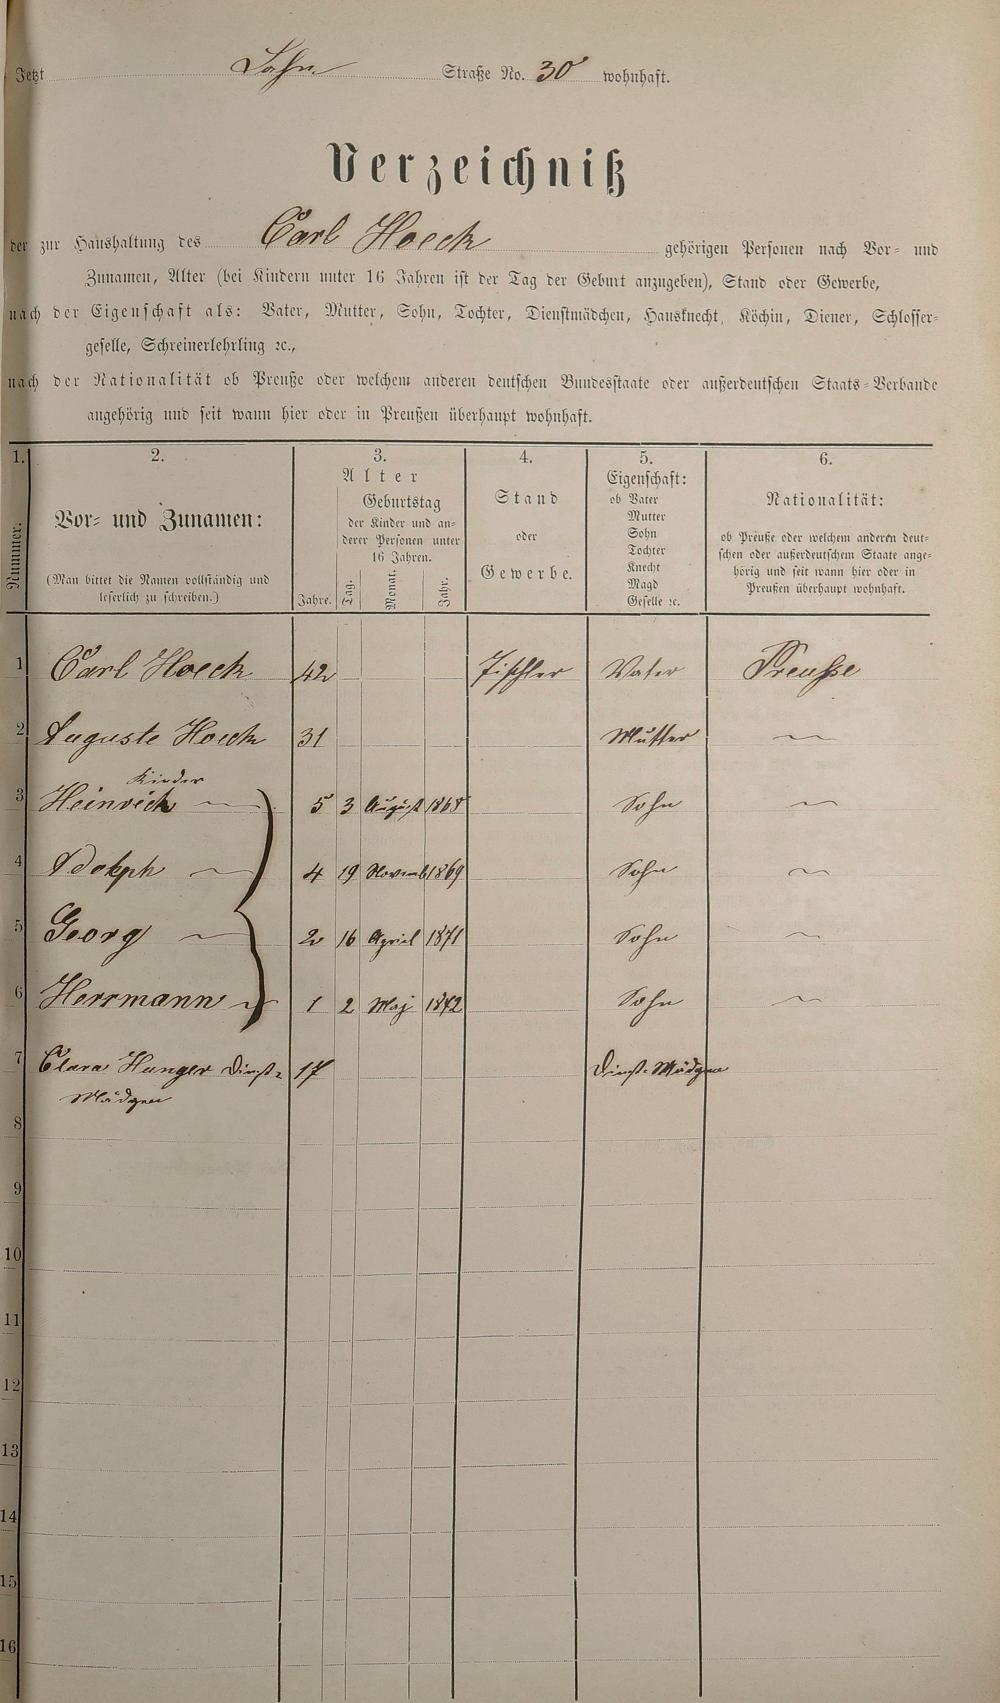 Jetzt Lahn Straße No. 30 wohnhaft.
Verzeichniß
der zur Haushaltung des Carl Hoeck gehörigen Personen nach Vor- und
Zunamen, Alter (bei Kindern unter 16 Jahren ist der Tag der Geburt anzugeben), Stand oder Gewerbe,
nach der Eigenschaft als: Vater, Mutter, Sohn, Tochter, Dienstmädchen, Hausknecht, Köchin, Diener, Schlosser-
geselle, Schreinerlehrling ꝛc.,
nach der Nationalität ob Preuße oder welchem anderen deutschen Bundesstaate oder außerdeutschen Staats-Verbande
angehörig und seit wann hier oder in Preußen überhaupt wohnhaft.
1. 2. 3. 4. 5. 6.
Nummer.
Vor- und Zunamen:
(Man bittet die Namen vollständig und
leserlich zu schreiben.)
Alter
Geburtstag
der Kinder und an-
derer Personen unter
16 Jahren.
Jahre. Tag. Monat. Jahr.
Stand
oder
Gewerbe.
Eigenschaft:
ob Vater
Mutter
Sohn
Tochter
Knecht
Magd
Geselle ꝛc.
Nationalität:
ob Preuße oder welchem anderen deut-
schen oder außerdeutschem Staate ange-
hörig und seit wann hier oder in
Preußen überhaupt wohnhaft.
1 Carl Hoeck 42 Tischler Vater Preuße
2 Auguste Hoeck 31 Mutter 〃
Kinder
3 Heinrich 〃 5 3 August 1868 Sohn 〃
4 Adolph 〃 4 19 Novemb 1869 Sohn 〃
5 Georg 〃 2 16 April 1871 Sohn 〃
6 Herrmann 〃 1 2 Maj 1872 Sohn 〃
7 Clara Hunger Dinst- 17 Dinst-Mädgen
Mädgen
8
9
10
11
12
13
14
15
16